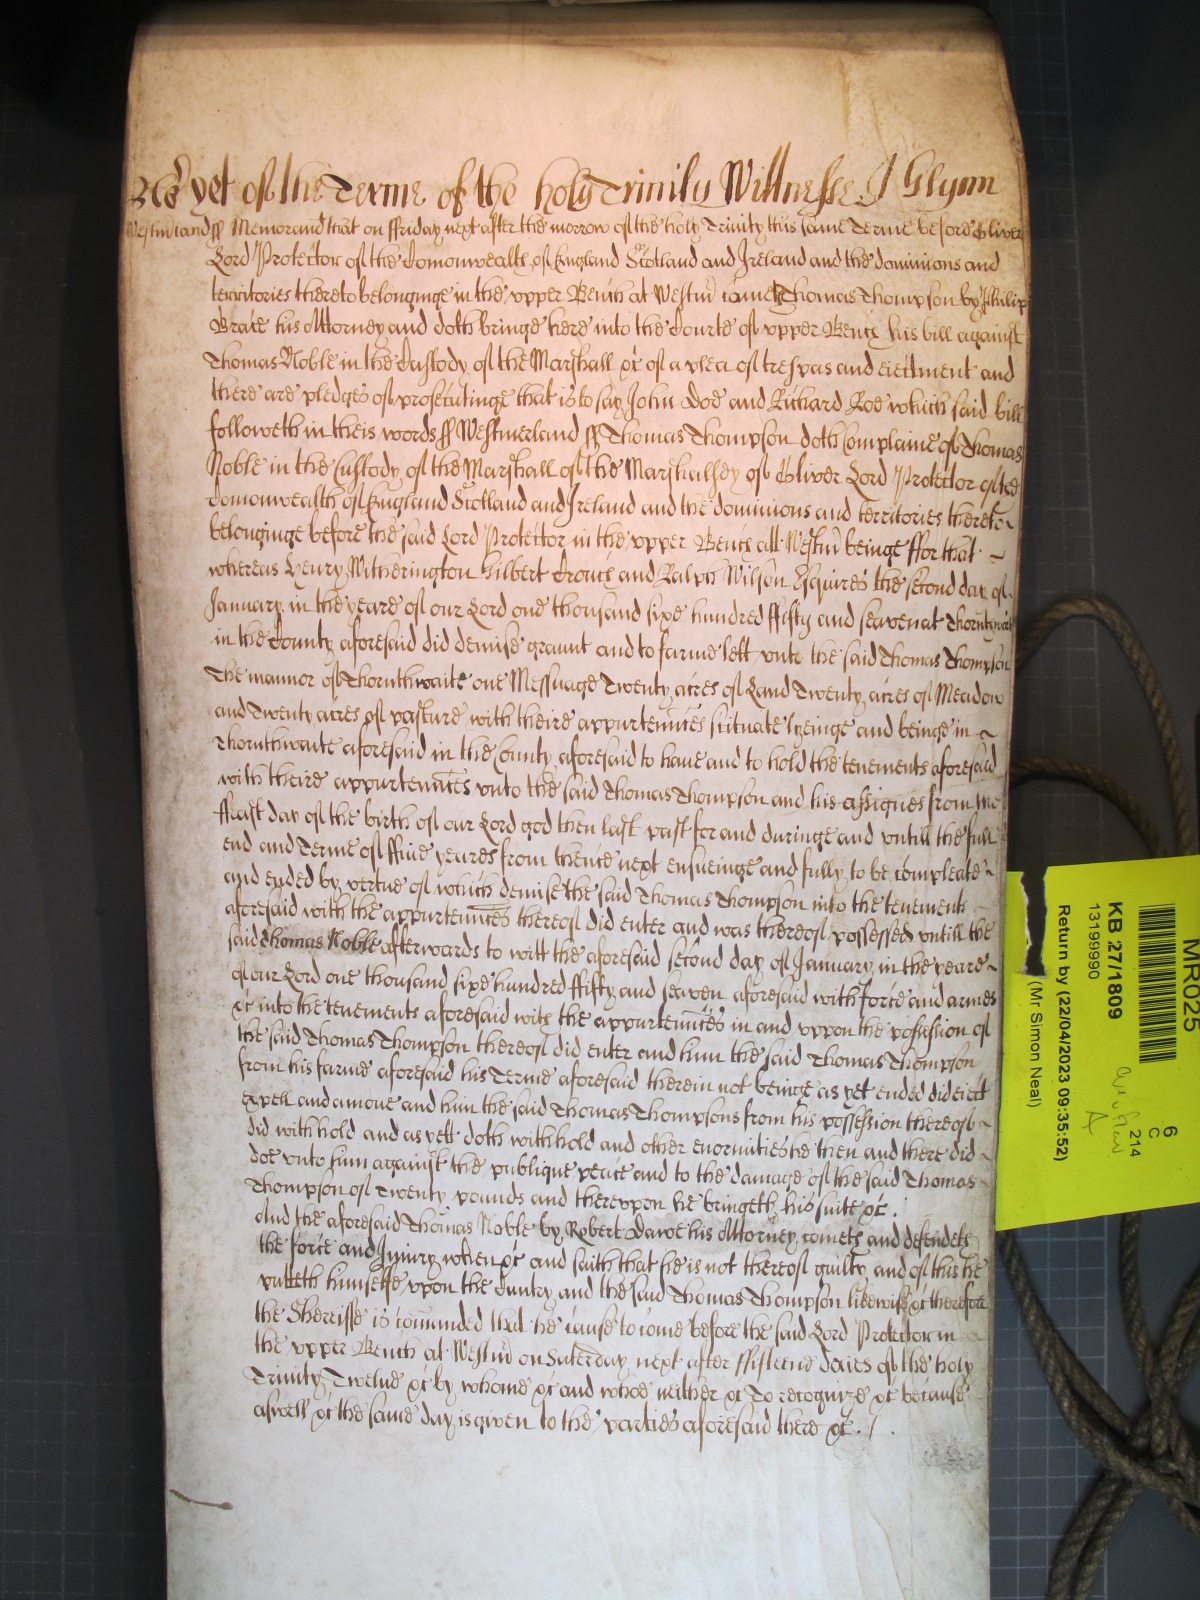 As yet of the Terme of the holy Trinity Wittnesse J Glynn
Westmerland ss Memorand that on ffriday next after the morrow of the holy Trinity this same Terme before Oliver
Lord Protector of the Comonwealth of England Scotland and Ireland and the dominions and
territories thereto belonginge in the upper Bench at Westm came Thomas Thompson by Phillip
his Attorney and doth bringe here into the Courte of upper Bench his bill against
Thomas Noble in the Custody of the Marshall &c of a plea of trespas and eiectment and
there are pledges of prosecutinge that is to say John Doe and Richard Roe which said bill
followeth in theis words ss Westmerland ss Thomas Thompson doth Complaine of Thomas
Noble in the Custody of the Marshall of the Marshallsey of Oliver Lord Protector of the
Comonwealth of England Scotland and Ireland and the dominions and territories thereto
belonginge before the said Lord Protector in the upper Bench att Westm beinge ffor that
whereas Henry Witherington Gilbert Crouch and Ralph Wilson Esquires the second day of
January in the yeare of our Lord one thousand sixe hundred ffifty and seaven at Thornthwait
in the County aforesaid did demise graunt and to farme lett unto the said Thomas Thompson
The mannor of Thornthwaite one Messuage Twenty acres of Land Twenty acres of Meadow
and Twenty acres of pasture with theire appurtennces scituate lyeinge and beinge in
Thornthwaite aforesaid in the County aforesaid to have and to hold the tenements aforesaid
with theire appurtennces unto the said Thomas Thompson and his assignes from the
ffeast day of the birth of our Lord god then last past for and duringe and untill the full
end and Terme of ffive yeares from thence next ensueinge and fully to be compleate
and ended by vertue of which demise the said Thomas Thompson into the tenements
aforesaid with the appurtennces thereof did enter and was thereof possessed untill the
said Thomas Noble afterwards to witt the aforesaid second day of January in the yeare
of our Lord one thousand sixe hundred ffifty and seaven aforesaid with force and armes
&c into the tenements aforesaid with the appurtennces in and uppon the possession of
the said Thomas Thompson thereof did enter and him the said Thomas Thompson
from his farme aforesaid his Terme aforesaid therein not beinge as yet ended did eiect
expell and amove and him the said Thomas Thompsons from his possession thereof
did withhold and as yett doth withhold and other enormities he then and there did
doe unto him against the publique peace and to the damage of the said Thomas
Thompson of Twenty pounds and thereupon he bringeth his suite &c .
And the aforesaid Thomas Noble by Robert Dawe his Attorney cometh and defendeth
the force and Iniury when &c and saith that he is not thereof guilty and of this he
putteth himselfe upon the Cuntry and the said Thomas Thompson likewise &c therefore
the Sherriffe is comanded that he cause to come before the said Lord Protector in
the upper Bench at Westm on Saterday next after ffifteene daies of the holy
Trinity Twelve &c by whome &c and whoe neither &c To recognize &c because
aswell &c the same day is given to the parties aforesaid there &c . / .
MR025
6
C
2114
KB 27/1809
13199990
Return by (22/04/2023 09:35:52)
(Mr. Simon Neal)